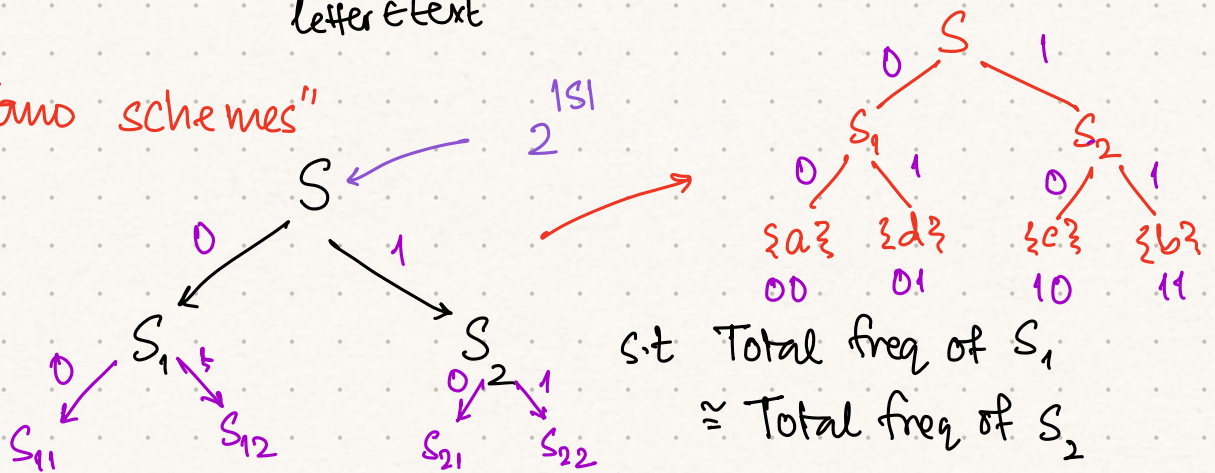 letter ∈ text
schemes"
2^|S|
S
0 1
S₁ S₂
0 0 1
S₁₁ S₁₂ S₂₁ S₂₂
S
0 1
S₁ S₂
0 1 0 1
{a} {d} {c} {b}
00 01 10 11
s.t Total freq of S₁
≅ Total freq of S₂